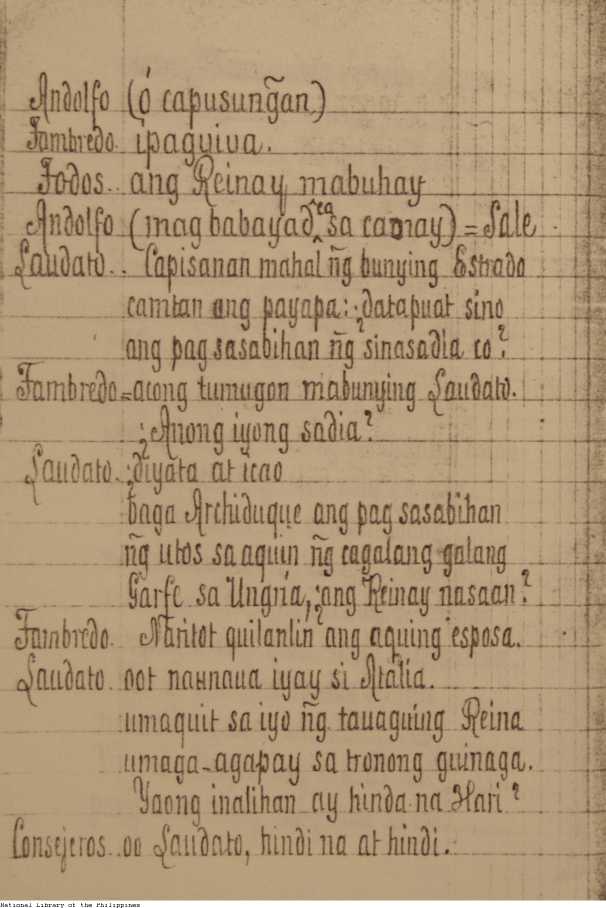 Andolfo (ó capusun͠gan)
Fambredo. ipaguiua.
Todos.. ang Reinay mabuhay
Andolfo (mag babayad ca sa camay) = Sale
Laudato.. Capisanan mahal n͠g bunying Estrado
camtan ang payapa: ¿datapuat sino
ang pag sasabihan n͠g sinasadia co?
Fambredo = acong tumugon mabunying Laudato.
¿Anong iyong sadia?
Laudato. ¿diyata at icao
baga Archiduque ang pag sasabihan
n͠g utos sa aquin n͠g cagalang galang
Garfe sa Ungria, ¿ang Reinay nasaan?
Fambredo. Naritot quilanlin ang aquing esposa.
Laudato. oot naunaua iyay si Atalia.
umaquit sa iyo n͠g tauaguing Reina
umaga-agapay sa tronong guinaga.
Yaong inalihan ay hinda na Hari?
Consejeros.. oo Laudato, hindi na at hindi.
National Library of the Philippines